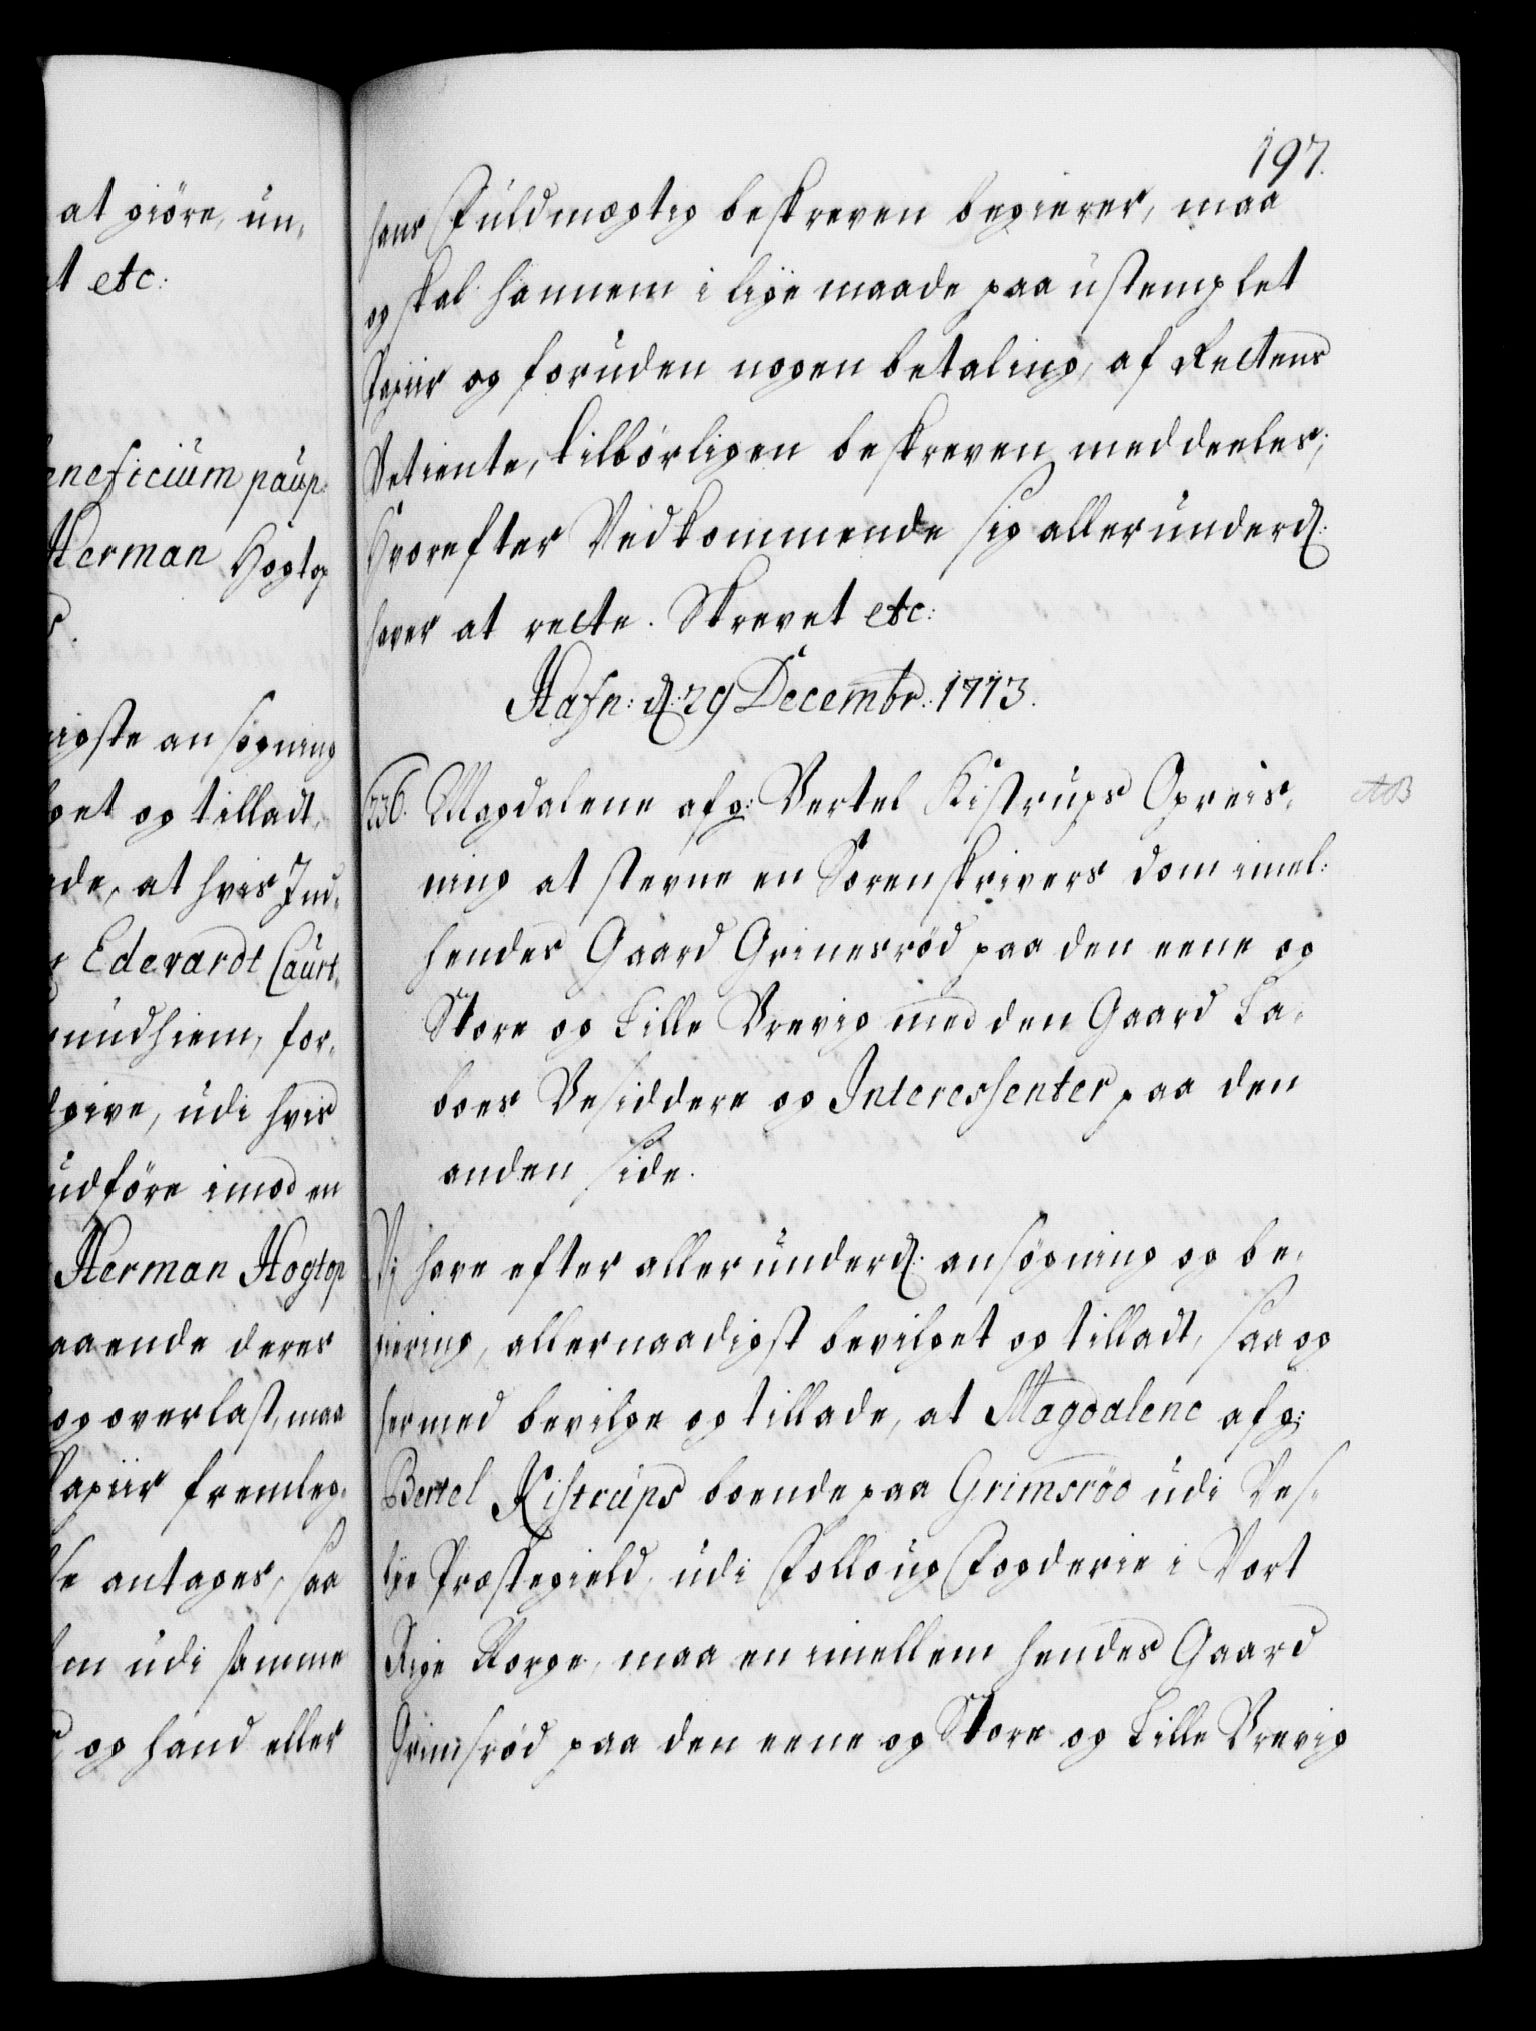 at giöre, un,
t etc:
eneficium paup:
Herman Hogtop
igste ansøgning
get og tilladt,
de, at hvis Ind,
Edevardt Caurt,
undhiem, for,
give, udi hvis
udföre imod en
Herman Hogtop
aaende deres
og overlast, maa
Papiir fremleg,
se antages, saa
em udi samme
og hand eller
197.
hans Fuldmægtig beskreven begierer, maa
og skal hannem i lige maade paa ustemplet
Papiir og foruden nogen betaling, af Rettens
Betiente, tilbörligen beskreven meddeeles;
Hvorefter Vedkommende sig allerunderd:
haver at rette. Skrevet etc:
Hafn: d: 29 Decembr: 1773.
236. Magdalene afg: Bertel Kistrups Opreis,
ning at stevne en Sorenskrivers dom imel:
hendes Gaard Grimesröd paa den eene og
Store og Lille Brevig med den Gaard La,
boes Besiddere og Interessenter paa den
anden side.
NB
Vi have efter allerunderd: ansögning og be,
giering, allernaadigst bevilget og tilladt, saa og
hermed bevilge og tillade, at Magdalene afg:
Bertel Kistrups boende paa Grimsröd udi Ves,
bye Præstegield, udi Folloug Fogderie i Vort
Rige Norge, maa en imellem hendes Gaard
Grimsröd paa den eene og Store og Lille Brevig